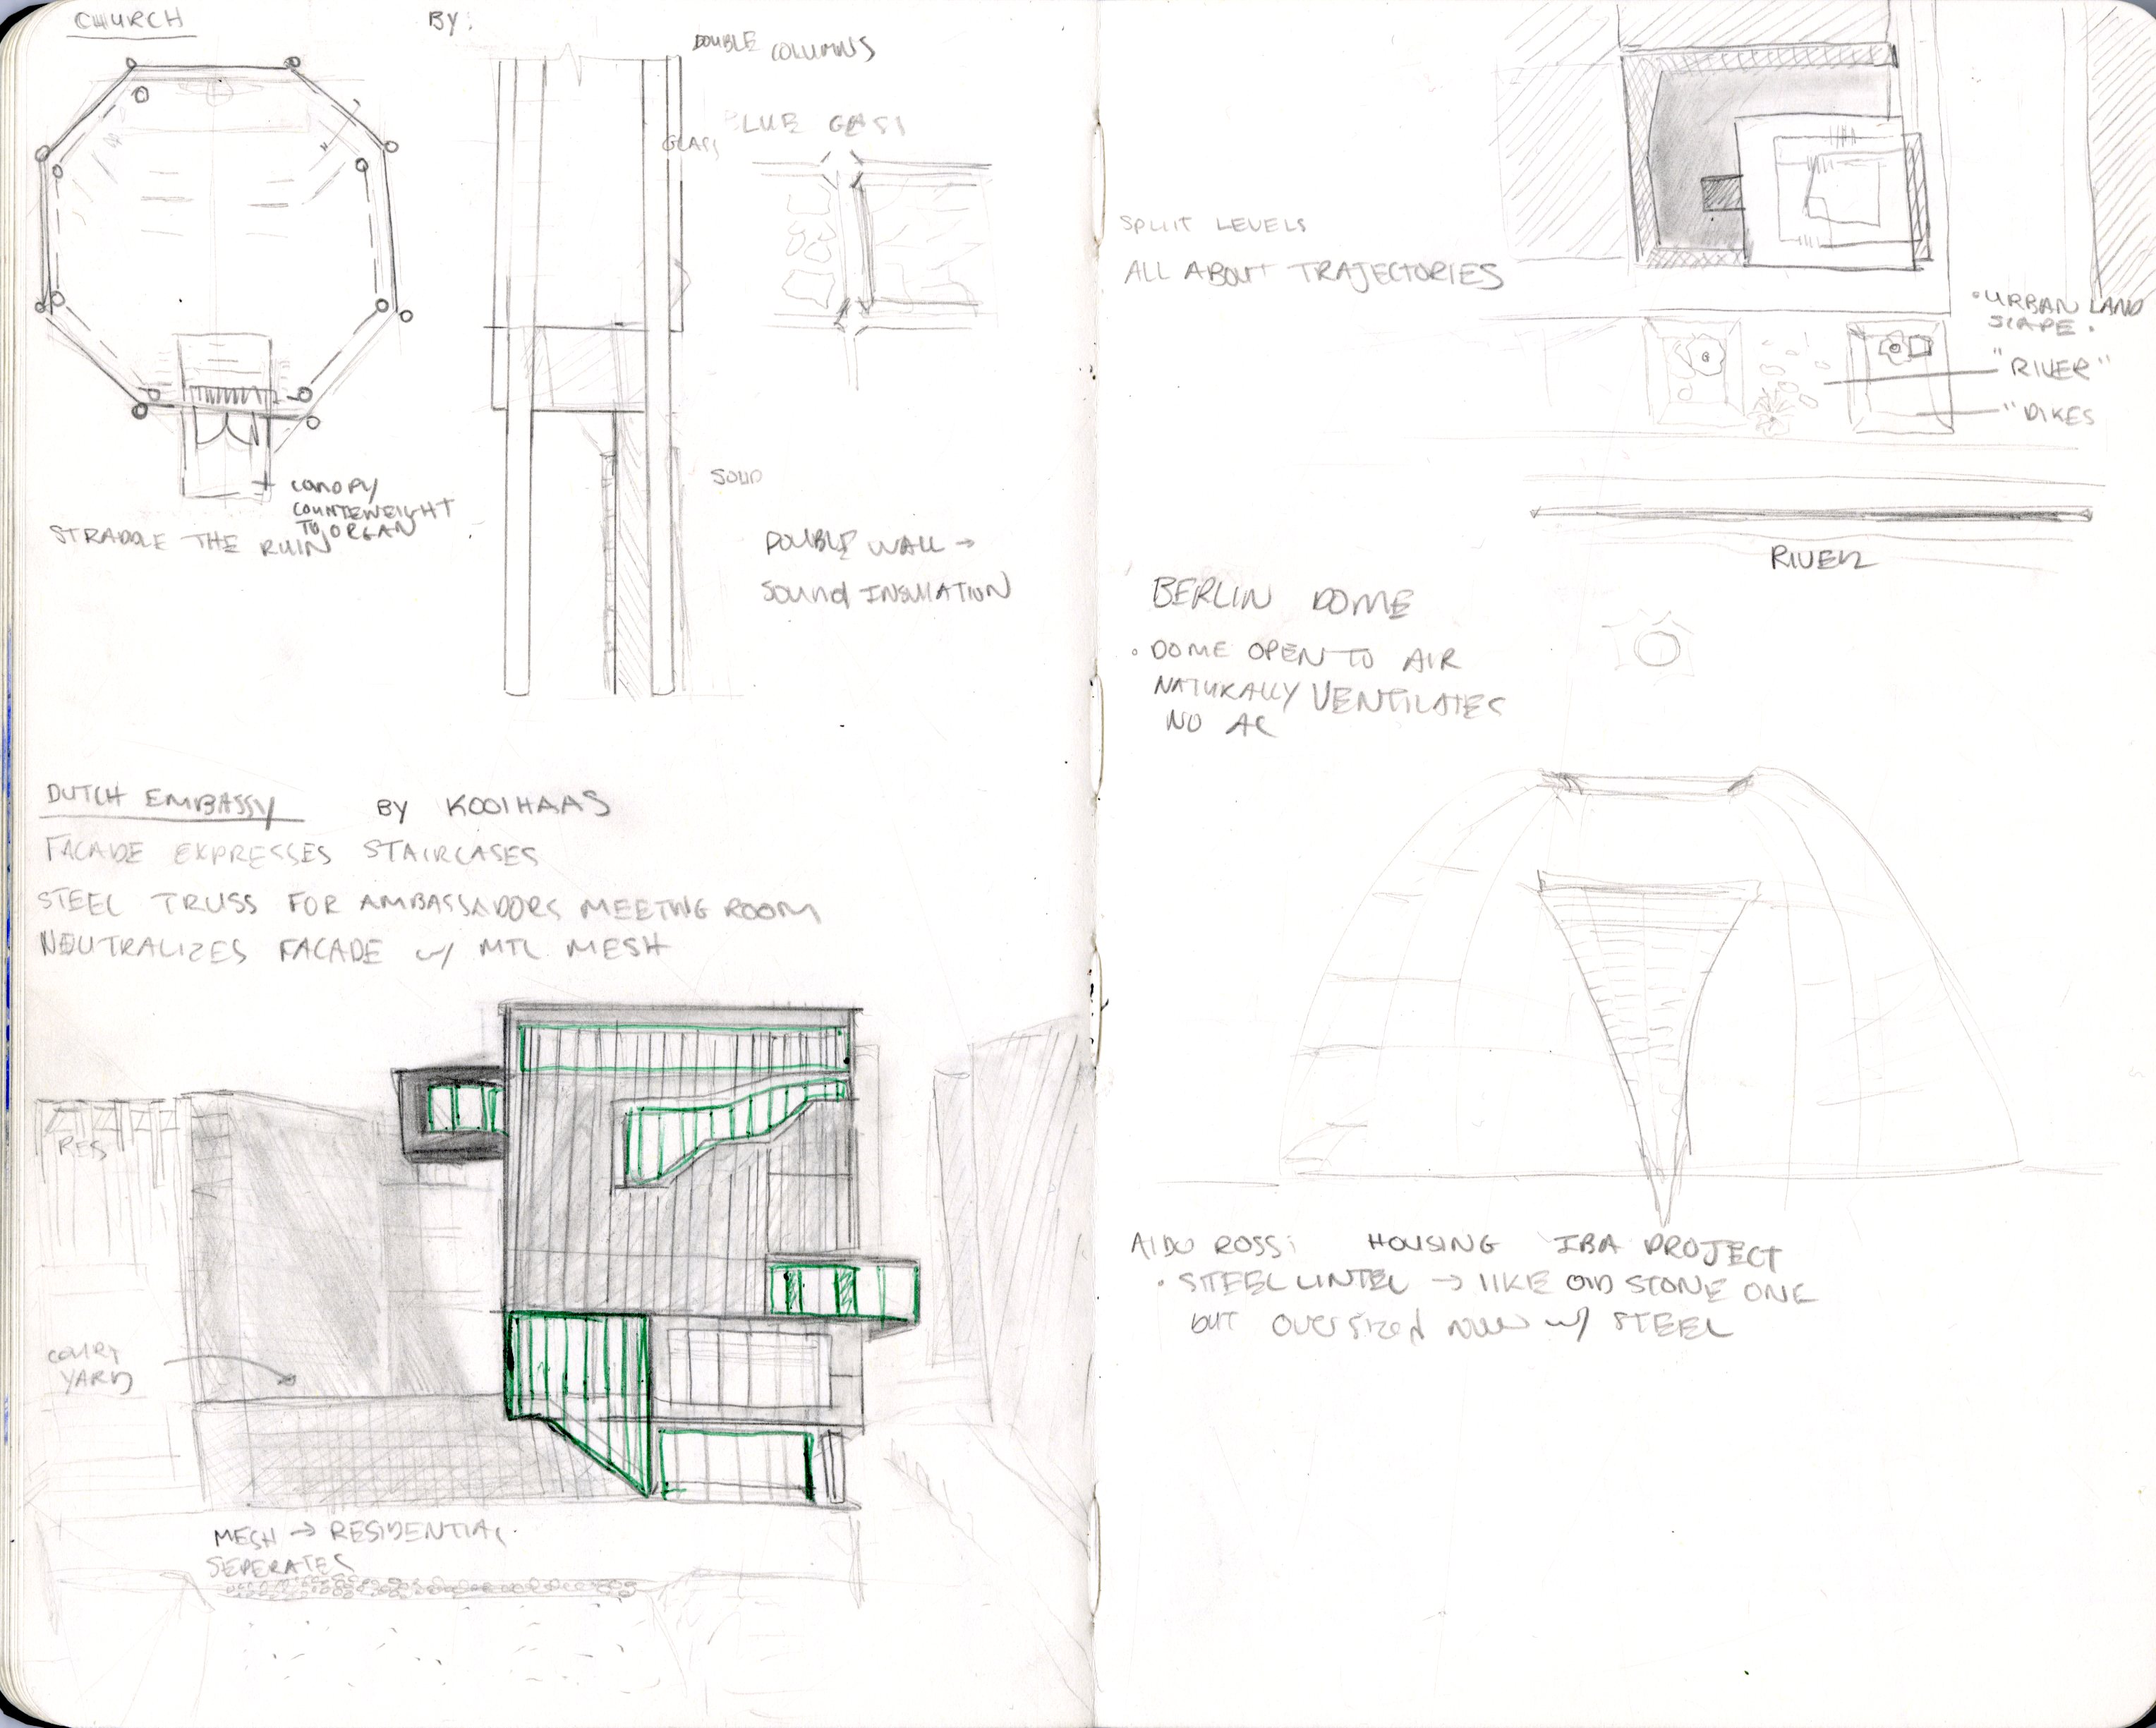 CHURCH
BY:
DOUBLE COLUMNS
BLUE GLASS
GLASS
SOLID
CANOPY
COUNTEWEIGHT
TO ORGAN
STRADDLE THE RUIN
DOUBLE WALL →
SOUND INSULATION
DUTCH EMBASSY BY KOOLHAAS
FACADE EXPRESSES STAIRCASES
STEEL TRUSS FOR AMBASSADORS MEETING ROOM
NEUTRALIZES FACADE w/ MTL MESH
RES
COURT
YARD
MESH → RESIDENTIAL
SEPERATES
SPLIT LEVELS
ALL ABOUT TRAJECTORIES
• URBAN LAND
SCAPE.
"RIVER"
"DIKES
RIVER
BERLIN DOME
• DOME OPEN TO AIR
NATURALLY VENTILATES
NO AC
ALDO ROSSI HOUSING IBA PROJECT
• STEEL LINTEL → LIKE OLD STONE ONE
BUT OVERSIZED NOW w/ STEEL